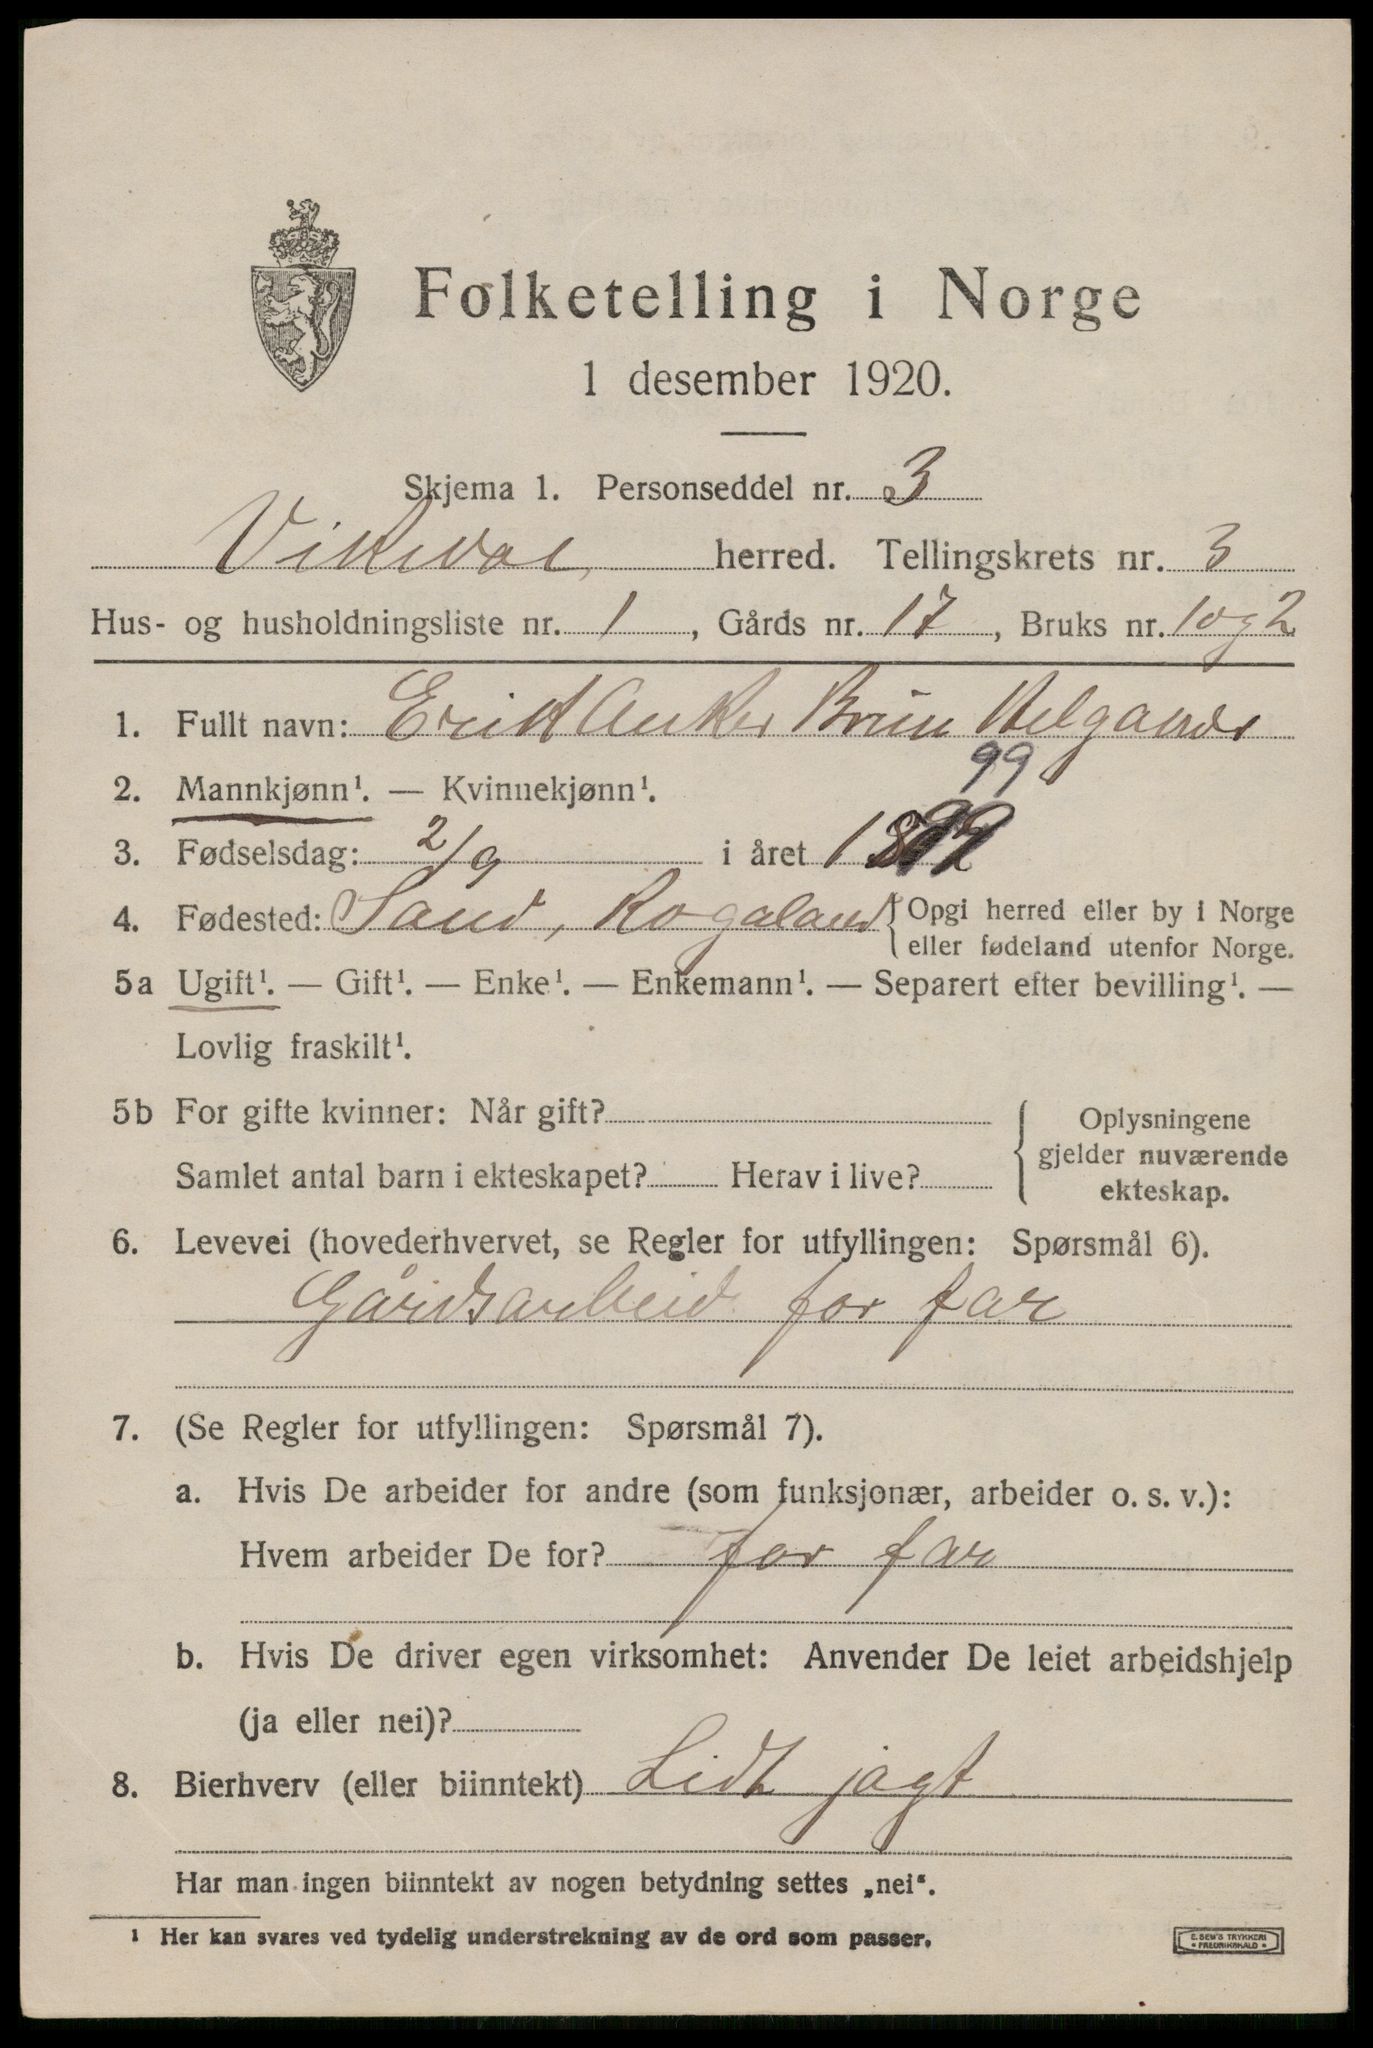 Folketelling i Norge
1 desember 1920.
Skjema 1. Personseddel nr. 3
Vikedal herred. Tellingskrets nr. 3
Hus- og husholdningsliste nr. 1, Gårds nr. 17, Bruks nr. 1 og 2
1. Fullt navn: Erik Anker Brun Helgaland
99
2. Mannkjønn¹. — Kvinnekjønn¹.
3. Fødselsdag: 2/9 i året 1899
4. Fødested: Sand, Rogaland { Opgi herred eller by i Norge
eller fødeland utenfor Norge.
5a Ugift¹. — Gift¹. — Enke¹. — Enkemann¹. — Separert efter bevilling¹. —
Lovlig fraskilt¹.
5b For gifte kvinner: Når gift?
Samlet antal barn i ekteskapet? Herav i live?
Oplysningene
gjelder nuværende
ekteskap.
6. Levevei (hovederhvervet, se Regler for utfyllingen: Spørsmål 6).
Gårdsarbeid for far
7. (Se Regler for utfyllingen: Spørsmål 7).
a. Hvis De arbeider for andre (som funksjonær, arbeider o. s. v.):
Hvem arbeider De for? for far
b. Hvis De driver egen virksomhet: Anvender De leiet arbeidshjelp
(ja eller nei)?
8. Bierhverv (eller biinntekt) Lidt jagt
Har man ingen biinntekt av nogen betydning settes „nei“.
¹ Her kan svares ved tydelig understrekning av de ord som passer.
E. SEM'S TRYKKERI
• FREDRIKSHALD •